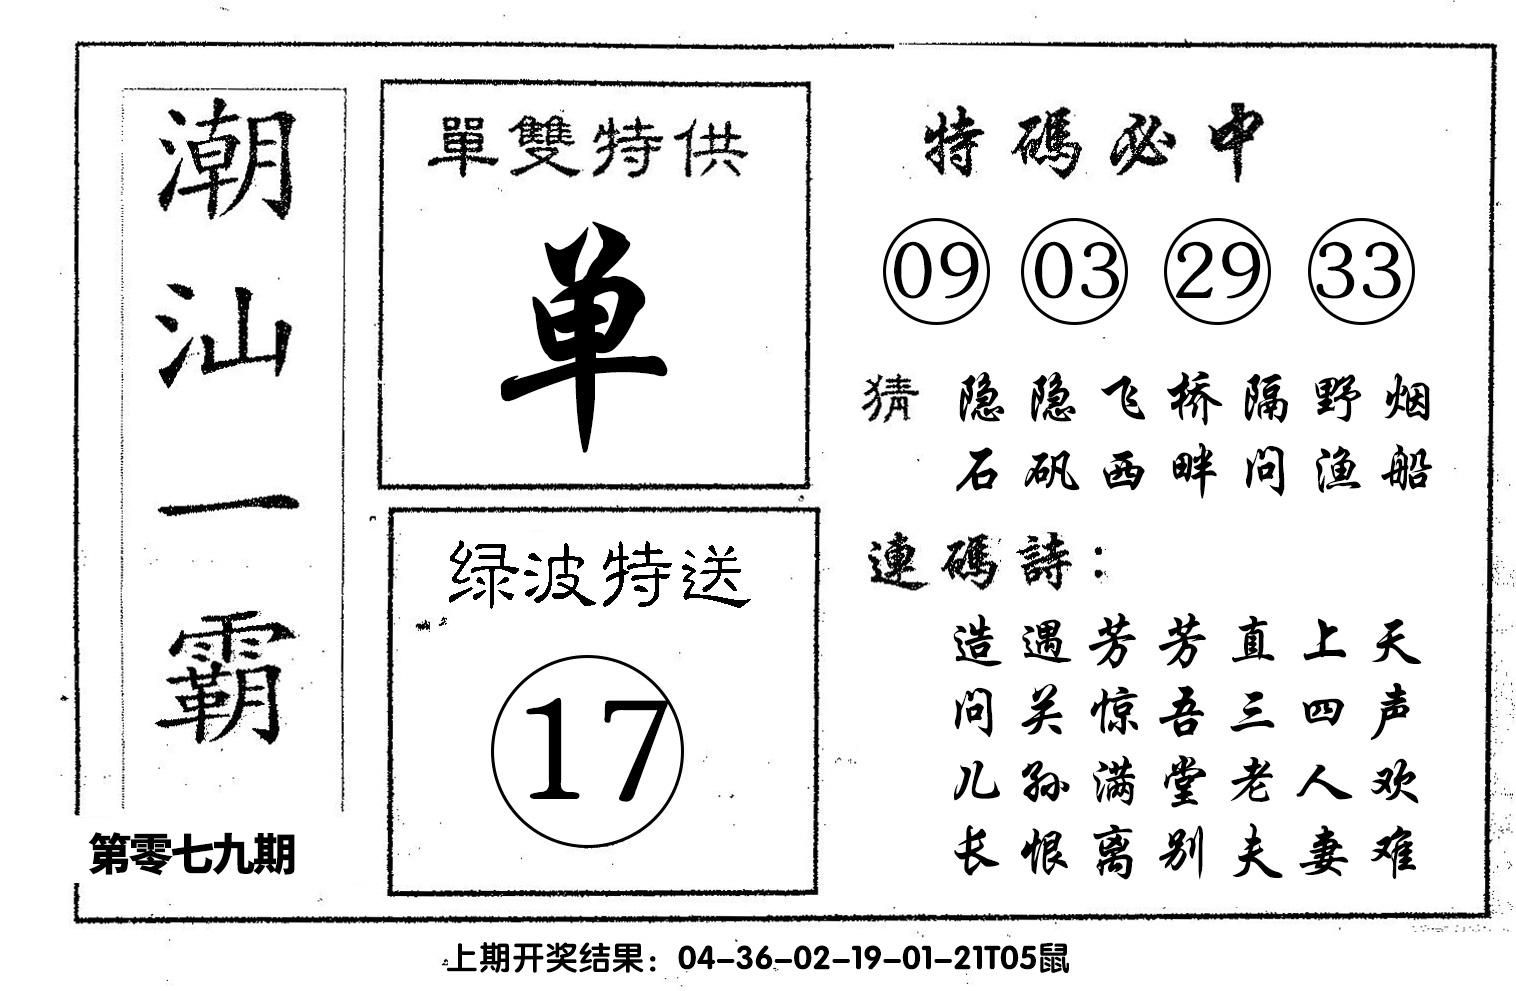 潮汕一霸
第零七九期
單雙特供
单
绿波特送
17
特碼必中
09 03 29 33
猜 隐隐飞桥隔野烟
石矾西畔问渔船
連碼詩：
造遇芳芳直上天
问关惊吾三四声
儿孙满堂老人欢
长恨离别夫妻难
上期开奖结果：04-36-02-19-01-21T05鼠